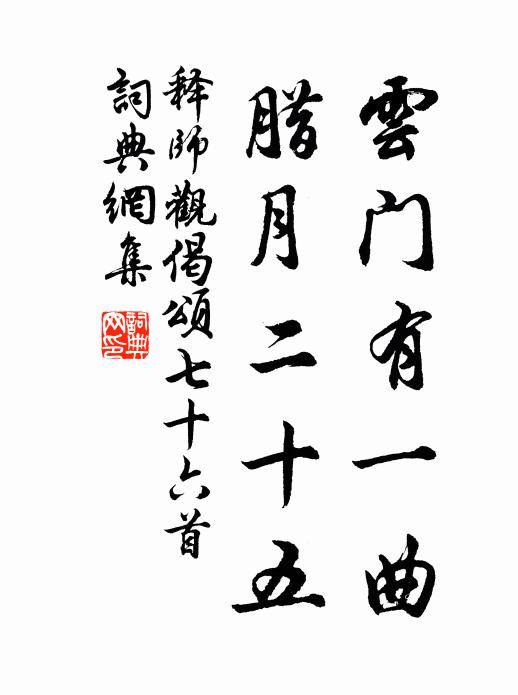 雲门有一曲
腊月二十五
释師觀偈頌七十六首
詞典網集
詞典网印